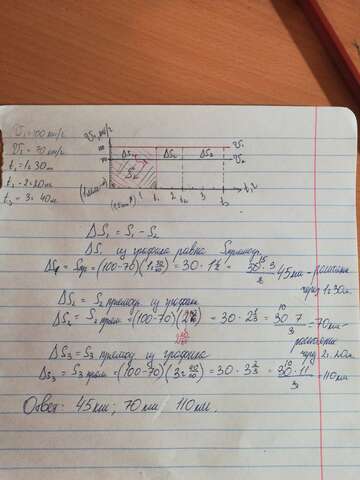 V₁=100 км/г
V₂ = 30 км/г
t₁ = 1г 30м
t₁ = 2г 20м
t₃ = 3г 40м
V, км/г
ΔS₁ ΔS₂ ΔS₃ V₁
V₂
1 t₁ 2 t₂ 3 t₃ t, г
ΔS₁ = S₁ - S₂
ΔS₁ из графика равна Sпрямоуг.
= Sпр = (100-70)(1 30/60) = 30 · 1 1/2 = 30·3/2 = 45км - расстояние
через 1г 30м.
ΔS₂ = S₂ прямоуг из графика
ΔS₂ = S₂ прям = (100-70)(2 20/60) = 30 · 2 1/3 = 30·7/3 = 70км -
расстояние
через 2г 20м.
ΔS₃ = S₃ прямоуг из графика
ΔS₃ = S₃ прям = (100-70)(3 40/60) = 30 · 3 2/3 = 30·11/3 = 110км
Ответ: 45км; 70км 110км.